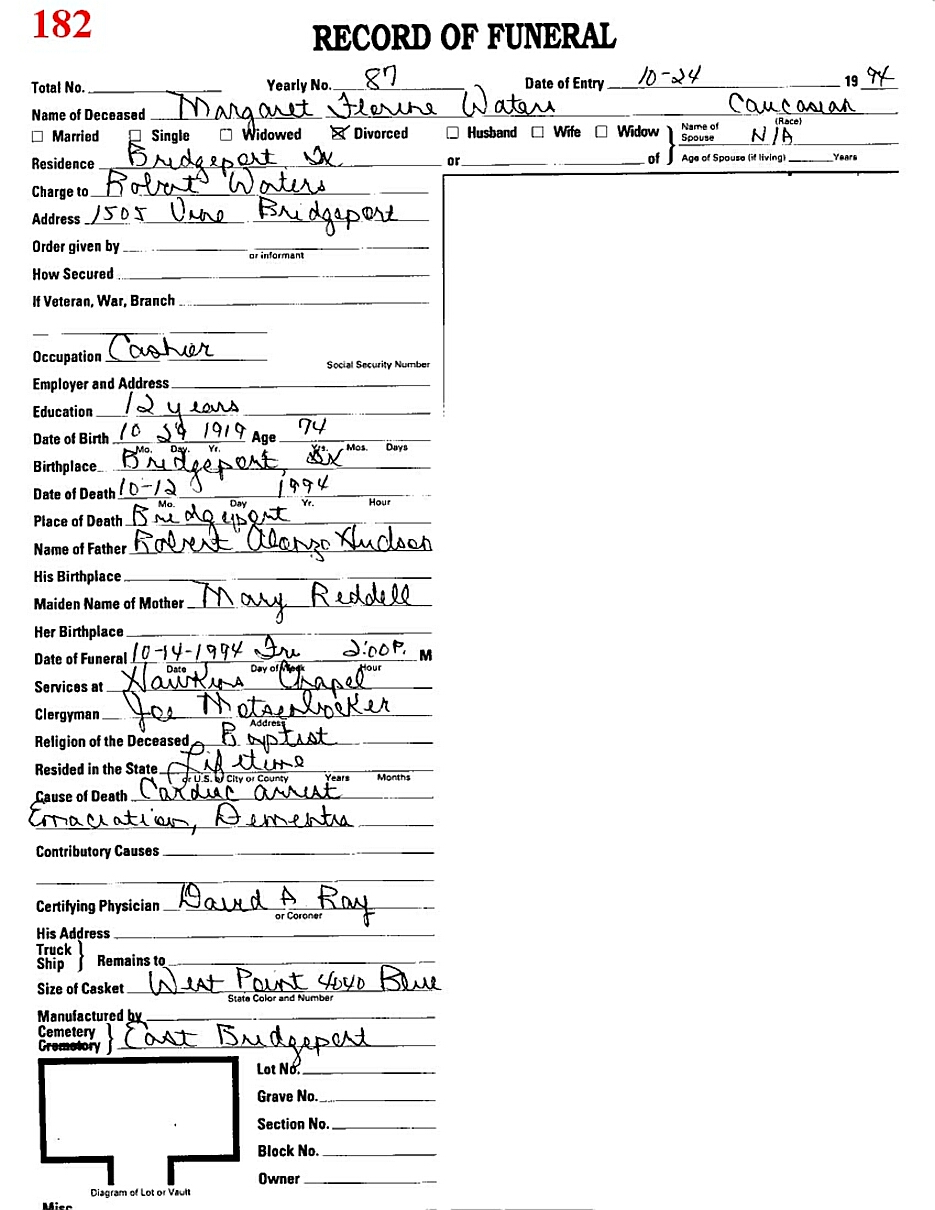 182
RECORD OF FUNERAL
Total No. Yearly No. 87 Date of Entry 10-24 1994
Name of Deceased Margaret Florine Waters Caucasian
(Race)
☐ Married ☐ Single ☐ Widowed ☒ Divorced ☐ Husband ☐ Wife ☐ Widow } Name of Spouse N/A
Residence Bridgeport Tx or of Age of Spouse (if living) Years
Charge to Robert Waters
Address 1505 Vine Bridgeport
Order given by
or informant
How Secured
If Veteran, War, Branch
Occupation Cashier
Social Security Number
Employer and Address
Education 12 years
Date of Birth 10 29 1919 Age 74
Mo. Day Yr. Yrs. Mos. Days
Birthplace Bridgeport, Tx
Date of Death 10-12 1994
Mo. Day Yr. Hour
Place of Death Bridgeport
Name of Father Robert Alonzo Hudson
His Birthplace
Maiden Name of Mother Mary Reddell
Her Birthplace
Date of Funeral 10-14-1994 Fri 2:00 P. M
Date Day of Week Hour
Services at Hawkins Chapel
Clergyman Joe Matsenbocker
Address
Religion of the Deceased Baptist
Resided in the State Lifetime
or U.S. or City or County Years Months
Cause of Death Cardiac arrest
Emaciation, Dementia
Contributory Causes
Certifying Physician David A Ray
or Coroner
His Address
Truck Ship } Remains to
Size of Casket West Point 4040 Blue
State Color and Number
Manufactured by
Cemetery Crematory } East Bridgeport
Lot No.
Grave No.
Section No.
Block No.
Owner
Diagram of Lot or Vault
Misc